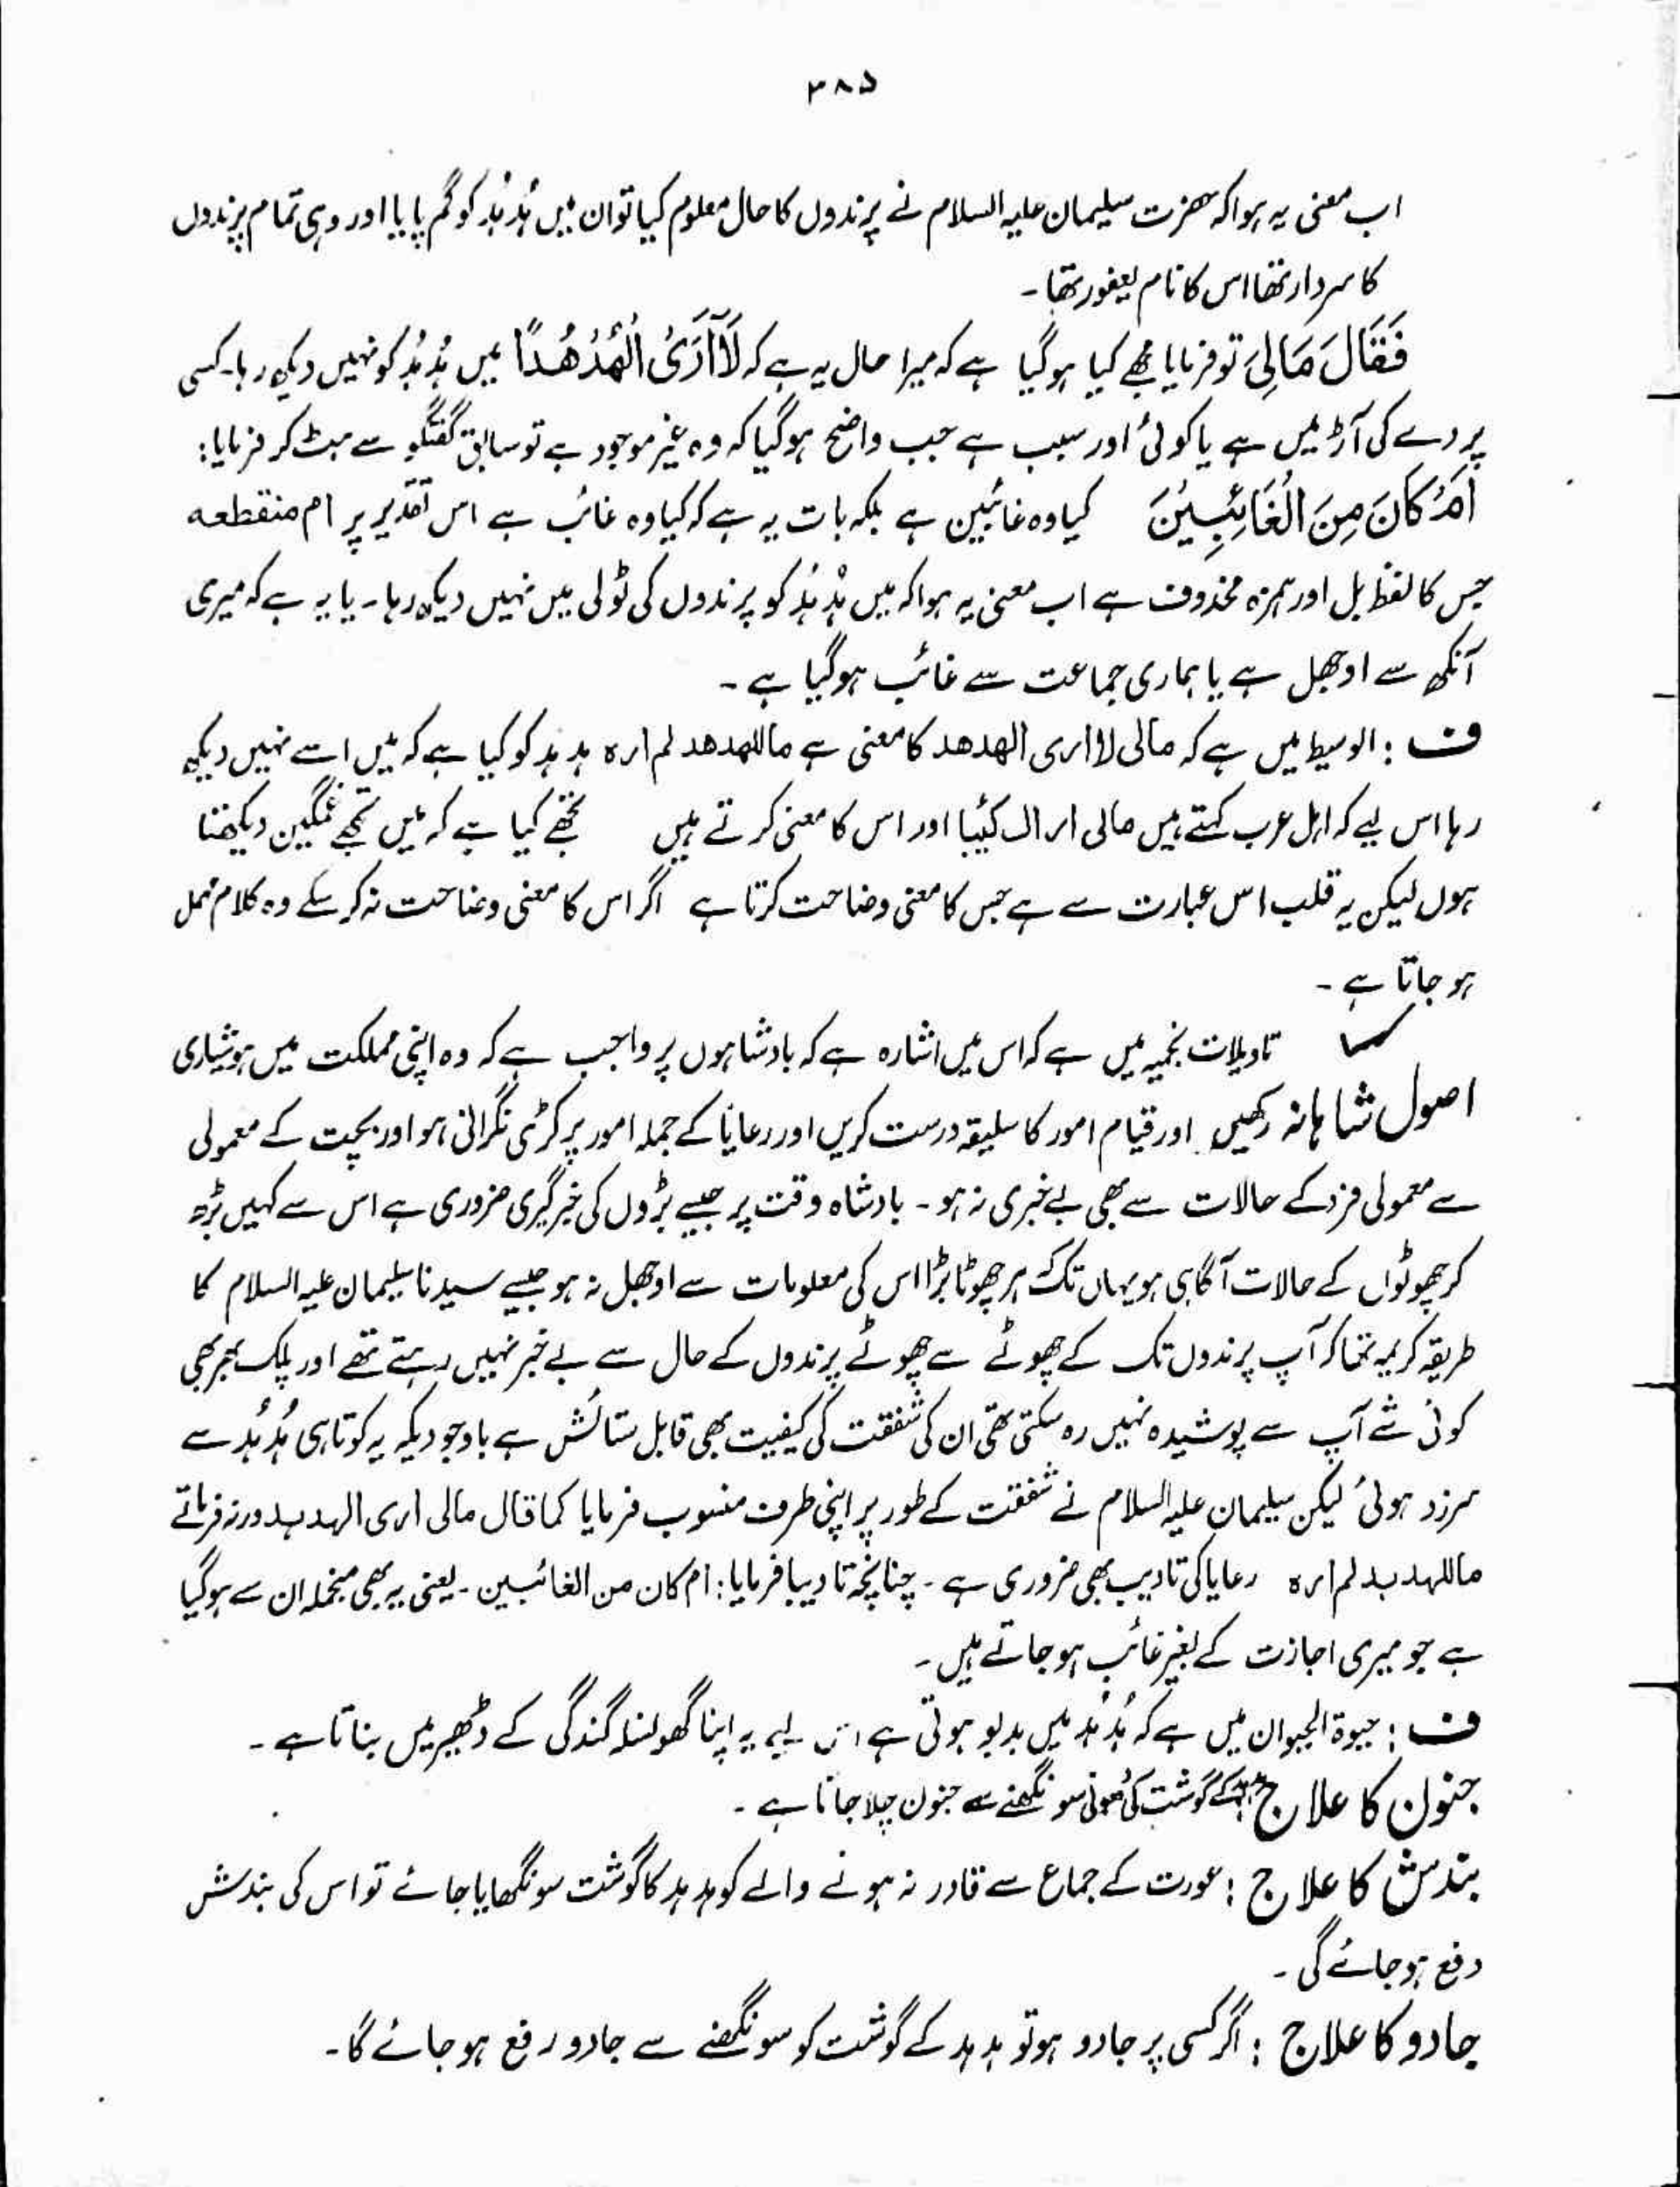 ۳۸۵
اب معنی یہ ہوا کہ حضرت سلیمان علیہ السلام نے پرندوں کا حال معلوم کیا تو ان میں ہُدہُد کو گم پایا اور وہی تمام پرندوں
کا سردار تھا اس کا نام یعفور تھا ۔
فَقَالَ مَالِیَ تو فرمایا مجھے کیا ہو گیا ہے کہ میرا حال یہ ہے کہ لَآ اَرَی الْهُدْهُدَ میں ہُدہُد کو نہیں دیکھ رہا۔ کسی
پردے کی آڑ میں ہے یا کوئی اور سبب ہے جب واضح ہو گیا کہ وہ غیر موجود ہے تو سابق گفتگو سے ہٹ کر فرمایا :
اَمْ كَانَ مِنَ الْغَآئِبِیْنَ کیا وہ غائبین ہے بلکہ بات یہ ہے کہ کیا وہ غائب ہے اس تقدیر پر ام منقطعہ
جس کا لفظ بل اور ہمزہ محذوف ہے اب معنی یہ ہوا کہ میں ہُدہُد کو پرندوں کی ٹولی میں نہیں دیکھ رہا ۔ یا یہ ہے کہ میری
آنکھ سے اوجھل ہے یا ہماری جماعت سے غائب ہو گیا ہے ۔
ف : الوسیط میں ہے کہ مالی لا اری الھدھد کا معنی ہے ماللھدھد لم ارہ ہدہد کو کیا ہے کہ میں اسے نہیں دیکھ
رہا اس لیے کہ اہل عرب کہتے ہیں مالی اراک کئیبا اور اس کا معنی کرتے ہیں تجھے کیا ہے کہ میں تجھے غمگین دیکھتا
ہوں لیکن یہ قلب اس عبارت سے ہے جس کا معنی وضاحت کرتا ہے اگر اس کا معنی وضاحت نہ کر سکے وہ کلام مہمل
ہو جاتا ہے ۔
تاویلات نجمیہ میں ہے کہ اس میں اشارہ ہے کہ بادشاہوں پر واجب ہے کہ وہ اپنی مملکت میں ہوشیاری
اصول شاہانہ رکھیں اور قیام امور کا سلیقہ درست کریں اور رعایا کے جملہ امور پر کڑی نگرانی ہو اور رعیت کے معمولی
سے معمولی فرد کے حالات سے بھی بے خبری نہ ہو ۔ بادشاہ وقت پر جیسے بڑوں کی خبر گیری ضروری ہے اس سے کہیں بڑھ
کر چھوٹوں کے حالات آگاہی ہو یہاں تک کہ ہر چھوٹا بڑا اس کی معلومات سے اوجھل نہ ہو جیسے سیدنا سلیمان علیہ السلام کا
طریقہ کریمہ تھا کہ آپ پرندوں تک کے چھوٹے سے چھوٹے پرندوں کے حال سے بے خبر نہیں رہتے تھے اور پلک بھر بھی
کوئی شے آپ سے پوشیدہ نہیں رہ سکتی تھی ان کی شفقت کی کیفیت بھی قابل ستائش ہے باوجودیکہ یہ کوتاہی ہُدہُد سے
سرزد ہوئی لیکن سلیمان علیہ السلام نے شفقت کے طور پر اپنی طرف منسوب فرمایا کما قال مالی اری الہدہد ورنہ فرماتے
ماللہدہد لم ارہ رعایا کی تادیب بھی ضروری ہے ۔ چنانچہ تادیبا فرمایا : ام کان من الغائبین ۔ یعنی یہ بھی منجملہ ان سے ہو گیا
ہے جو میری اجازت کے بغیر غائب ہو جاتے ہیں ۔
ف : حیوۃ الحیوان میں ہے کہ ہُدہُد میں بدبو ہوتی ہے اس لیے یہ اپنا گھونسلہ گندگی کے ڈھیر میں بناتا ہے ۔
جنون کا علاج ہدہد کے گوشت کی دھونی سونگھنے سے جنون چلا جاتا ہے ۔
بندش کا علاج : عورت کے جماع سے قادر نہ ہونے والے کو ہدہد کا گوشت سونگھایا جائے تو اس کی بندش
دفع ہو جائے گی ۔
جادو کا علاج : اگر کسی پر جادو ہو تو ہدہد کے گوشت کو سونگھنے سے جادو رفع ہو جائے گا ۔